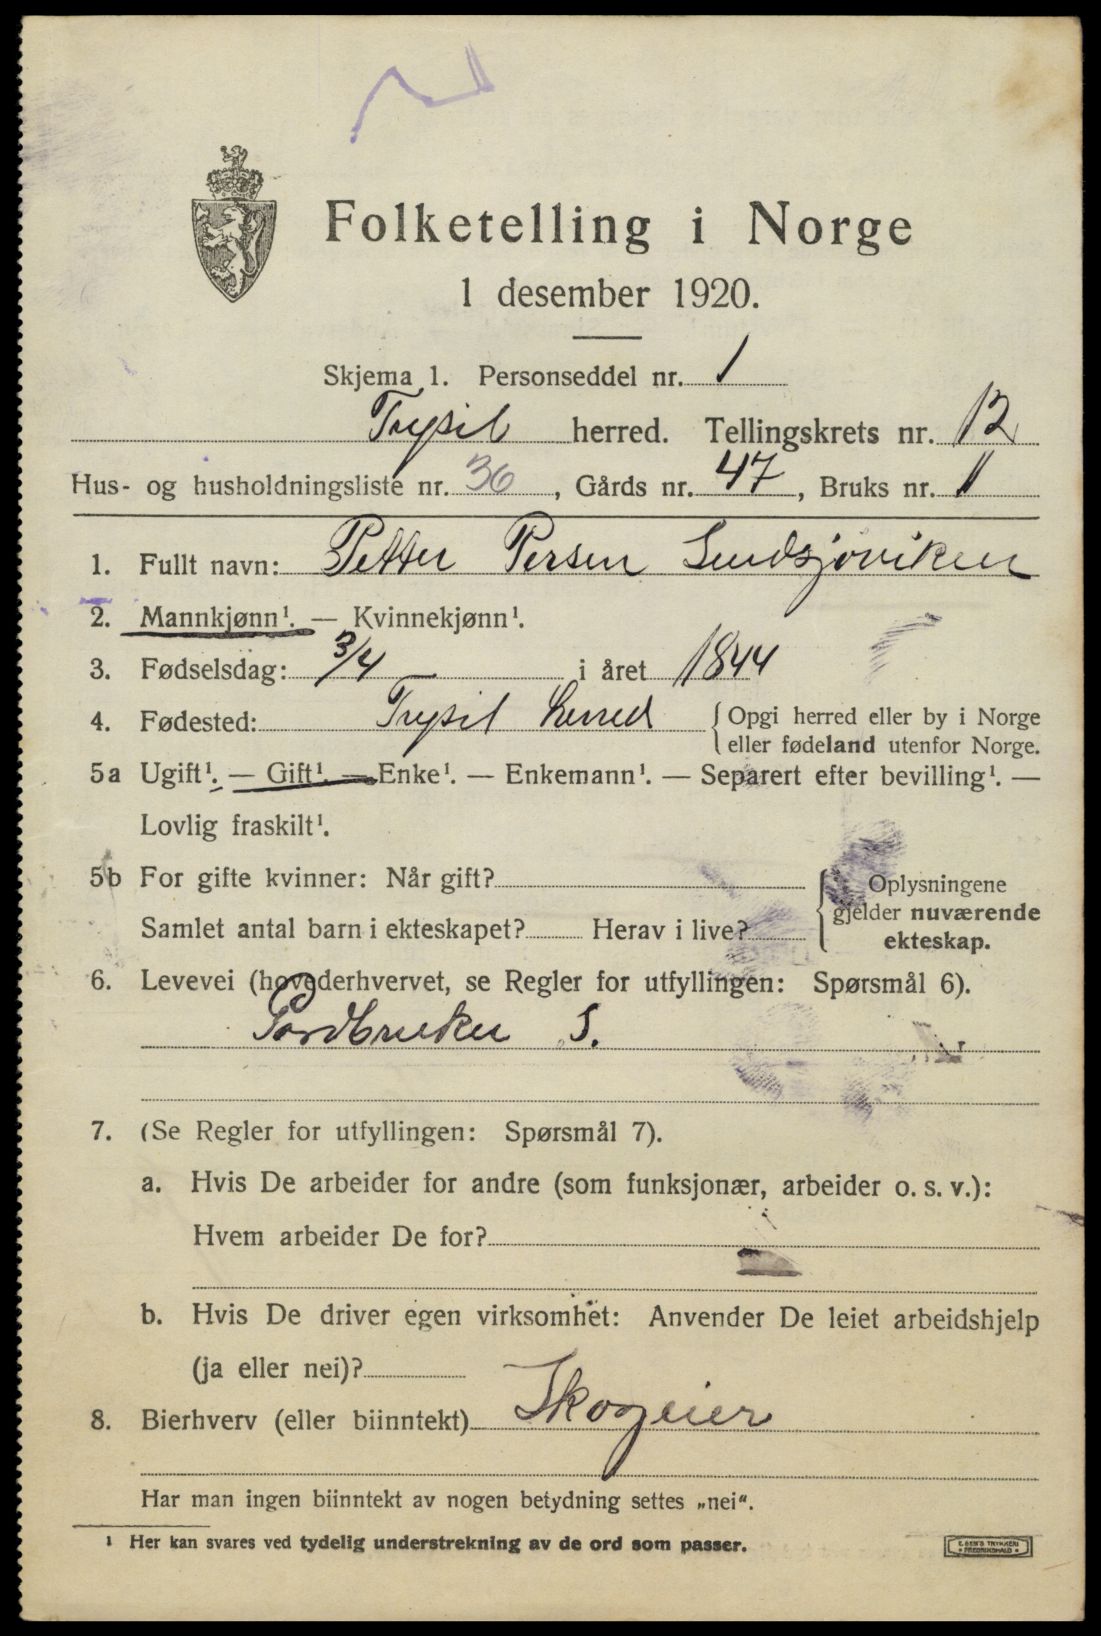 Folketelling i Norge
1 desember 1920.
Skjema 1. Personseddel nr. 1
Trysil herred. Tellingskrets nr. 12
Hus- og husholdningsliste nr. 36, Gårds nr. 47, Bruks nr. 1
1. Fullt navn: Petter Persen Sundsjøviken
2. Mannkjønn¹. — Kvinnekjønn¹.
3. Fødselsdag: 3/4 i året 1844
4. Fødested: Trysil herred { Opgi herred eller by i Norge
eller fødeland utenfor Norge.
5a Ugift¹. — Gift¹. — Enke¹. — Enkemann¹. — Separert efter bevilling¹. —
Lovlig fraskilt¹.
5b For gifte kvinner: Når gift? { Oplysningene
gjelder nuværende
Samlet antal barn i ekteskapet? Herav i live?
ekteskap.
6. Levevei (hovederhvervet, se Regler for utfyllingen: Spørsmål 6).
Jordbruker S.
7. (Se Regler for utfyllingen: Spørsmål 7).
a. Hvis De arbeider for andre (som funksjonær, arbeider o. s. v.):
Hvem arbeider De for?
b. Hvis De driver egen virksomhet: Anvender De leiet arbeidshjelp
(ja eller nei)?
8. Bierhverv (eller biinntekt) Skogeier
Har man ingen biinntekt av nogen betydning settes „nei“.
¹ Her kan svares ved tydelig understrekning av de ord som passer.
TRYKKERI
FREDRIKSHALD